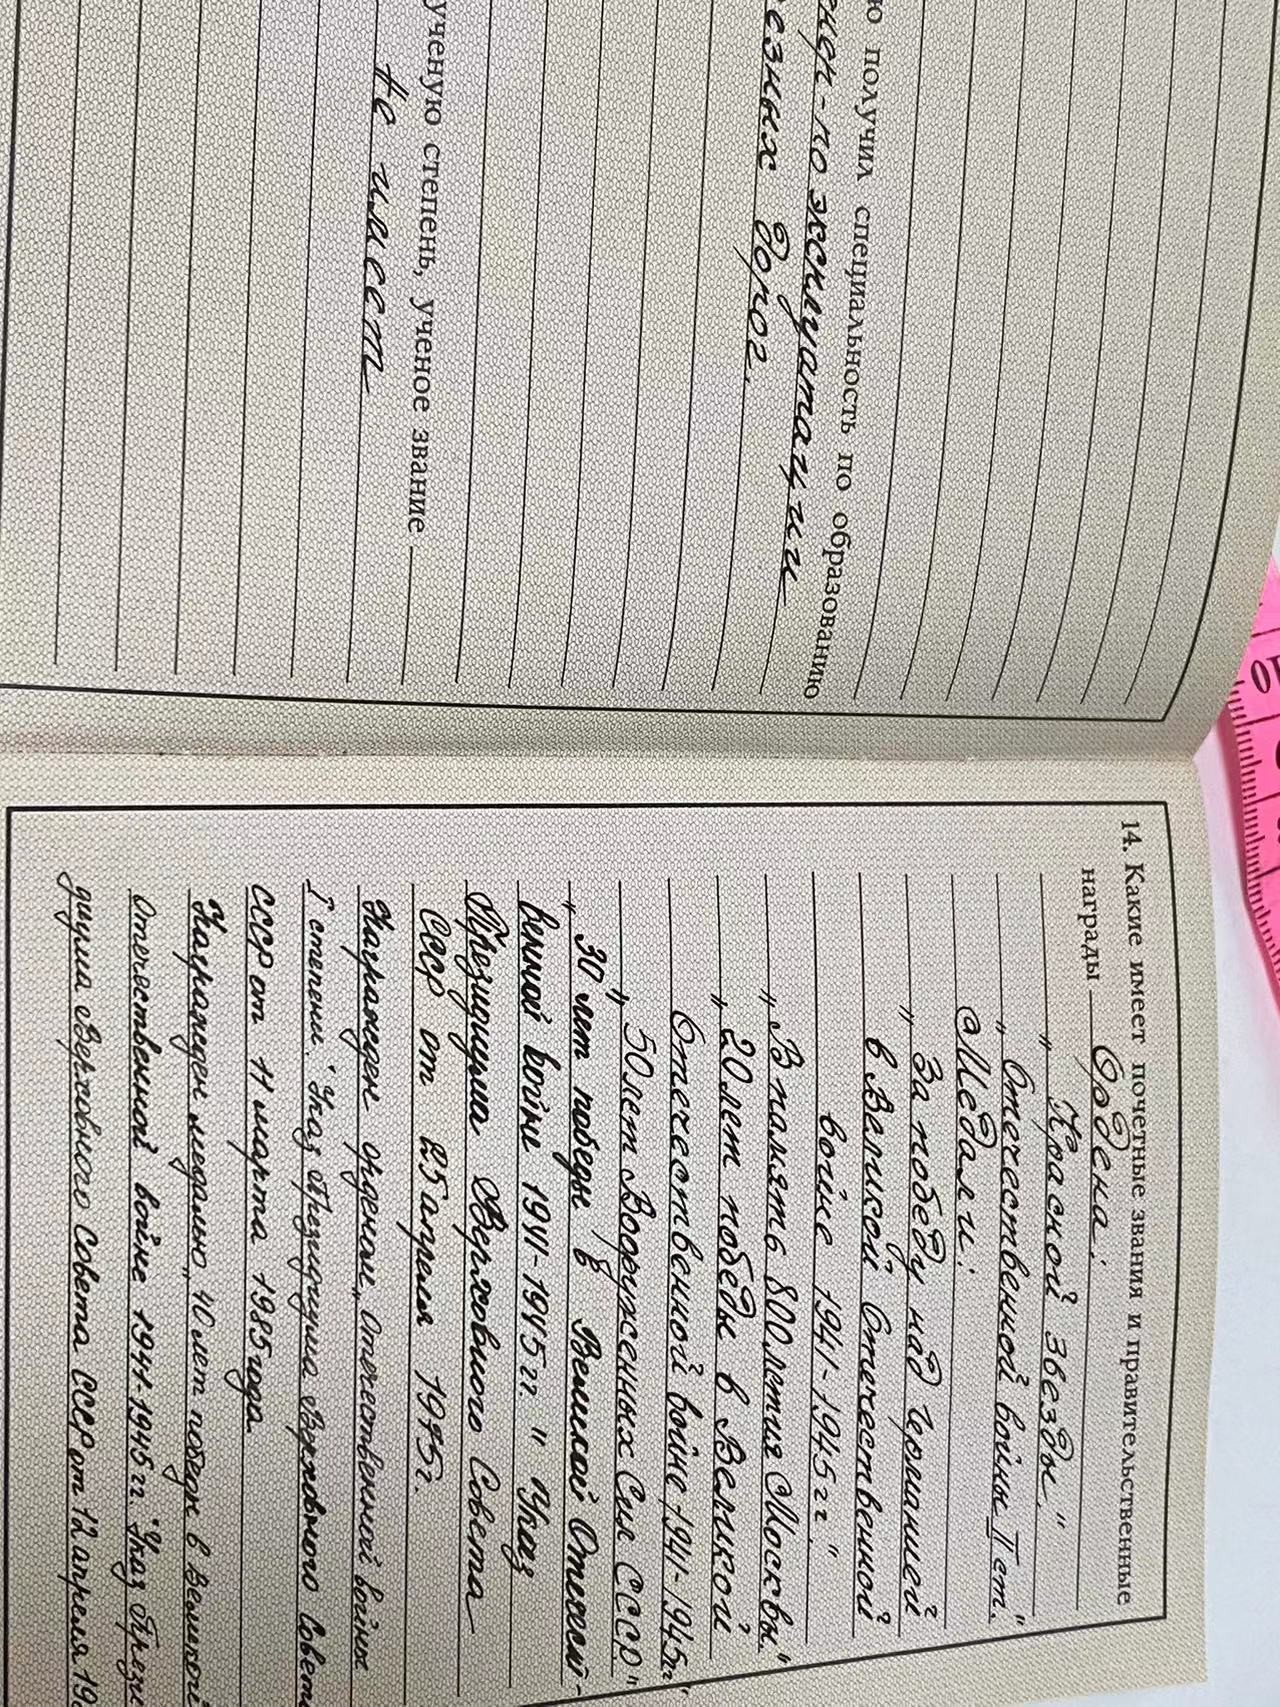 ю получил специальность по образованию
по эксплуатации
езных дорог.
ученую степень, ученое звание
Не имеет
14. Какие имеет почетные звания и правительственные
награды Ордена:
„Красной Звезды"
„Отечественной войны II ст."
Медали:
„За победу над Германией
в Великой Отечественной
войне 1941-1945 гг."
„В память 800 летия Москвы"
„20 лет победы в Великой
Отечественной войне 1941-1945гг"
„50 лет Вооруженных Сил СССР"
„30 лет победы в Великой Отечест-
венной войне 1941-1945 гг." Указ
Президиума Верховного Совета
СССР от 25 апреля 1975г.
Награжден орденом „Отечественной войны
I степени." Указ Президиума Верховного Совета
СССР от 11 марта 1985 года
Награжден медалью „40 лет победы в Великой
Отечественной войне 1941-1945 гг." Указ Прези
диума Верховного Совета СССР от 12 апреля 19